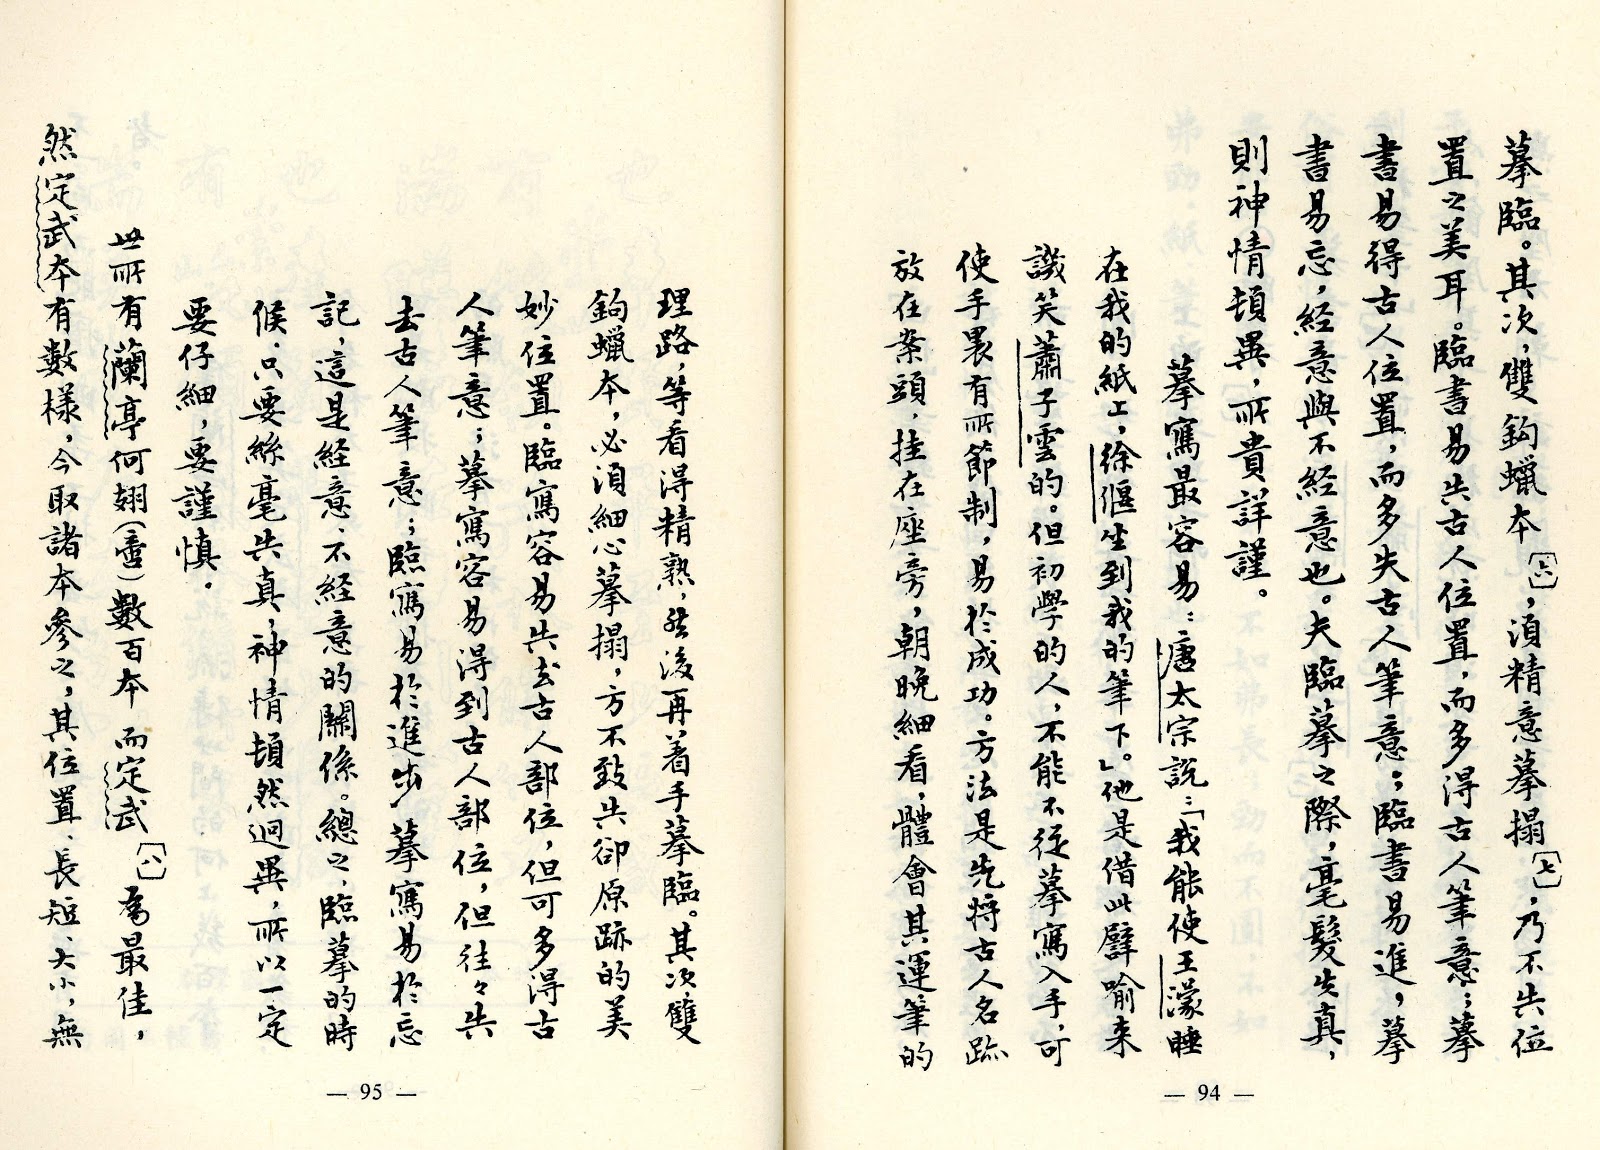 摹臨。其次，雙鈎蠟本〔六〕，須精意摹搨〔七〕，乃不失位
置之美耳。臨書易失古人位置，而多得古人筆意；摹
書易得古人位置，而多失古人筆意；臨書易進，摹
書易忘，經意與不經意也。夫臨摹之際，毫髮失真，
則神情頓異，所貴詳謹。
摹寫最容易：唐太宗說：「我能使王濛睡
在我的紙上，徐偃坐到我的筆下。」他是借此譬喻來
譏笑蕭子雲的。但初學的人，不能不從摹寫入手，可
使手裏有所節制，易於成功。方法是先將古人名跡
放在案頭，挂在座旁，朝晚細看，體會其運筆的
— 94 —
理路，等看得精熟，然後再着手摹臨。其次，雙
鈎蠟本，必須細心摹搨，方不致失卻原跡的美
妙位置。臨寫容易失去古人部位，但可多得古
人筆意；摹寫容易得到古人部位，但往々失
去古人筆意；臨寫易於進步，摹寫易於忘
記，這是經意、不經意的關係。總之，臨摹的時
候，只要絲毫失真，神情頓然迥異，所以一定
要仔細，要謹慎。
世所有蘭亭何翅（啻）數百本，而定武〔八〕為最佳，
然定武本有數樣，今取諸本參之，其位置、長短、大小，無
— 95 —